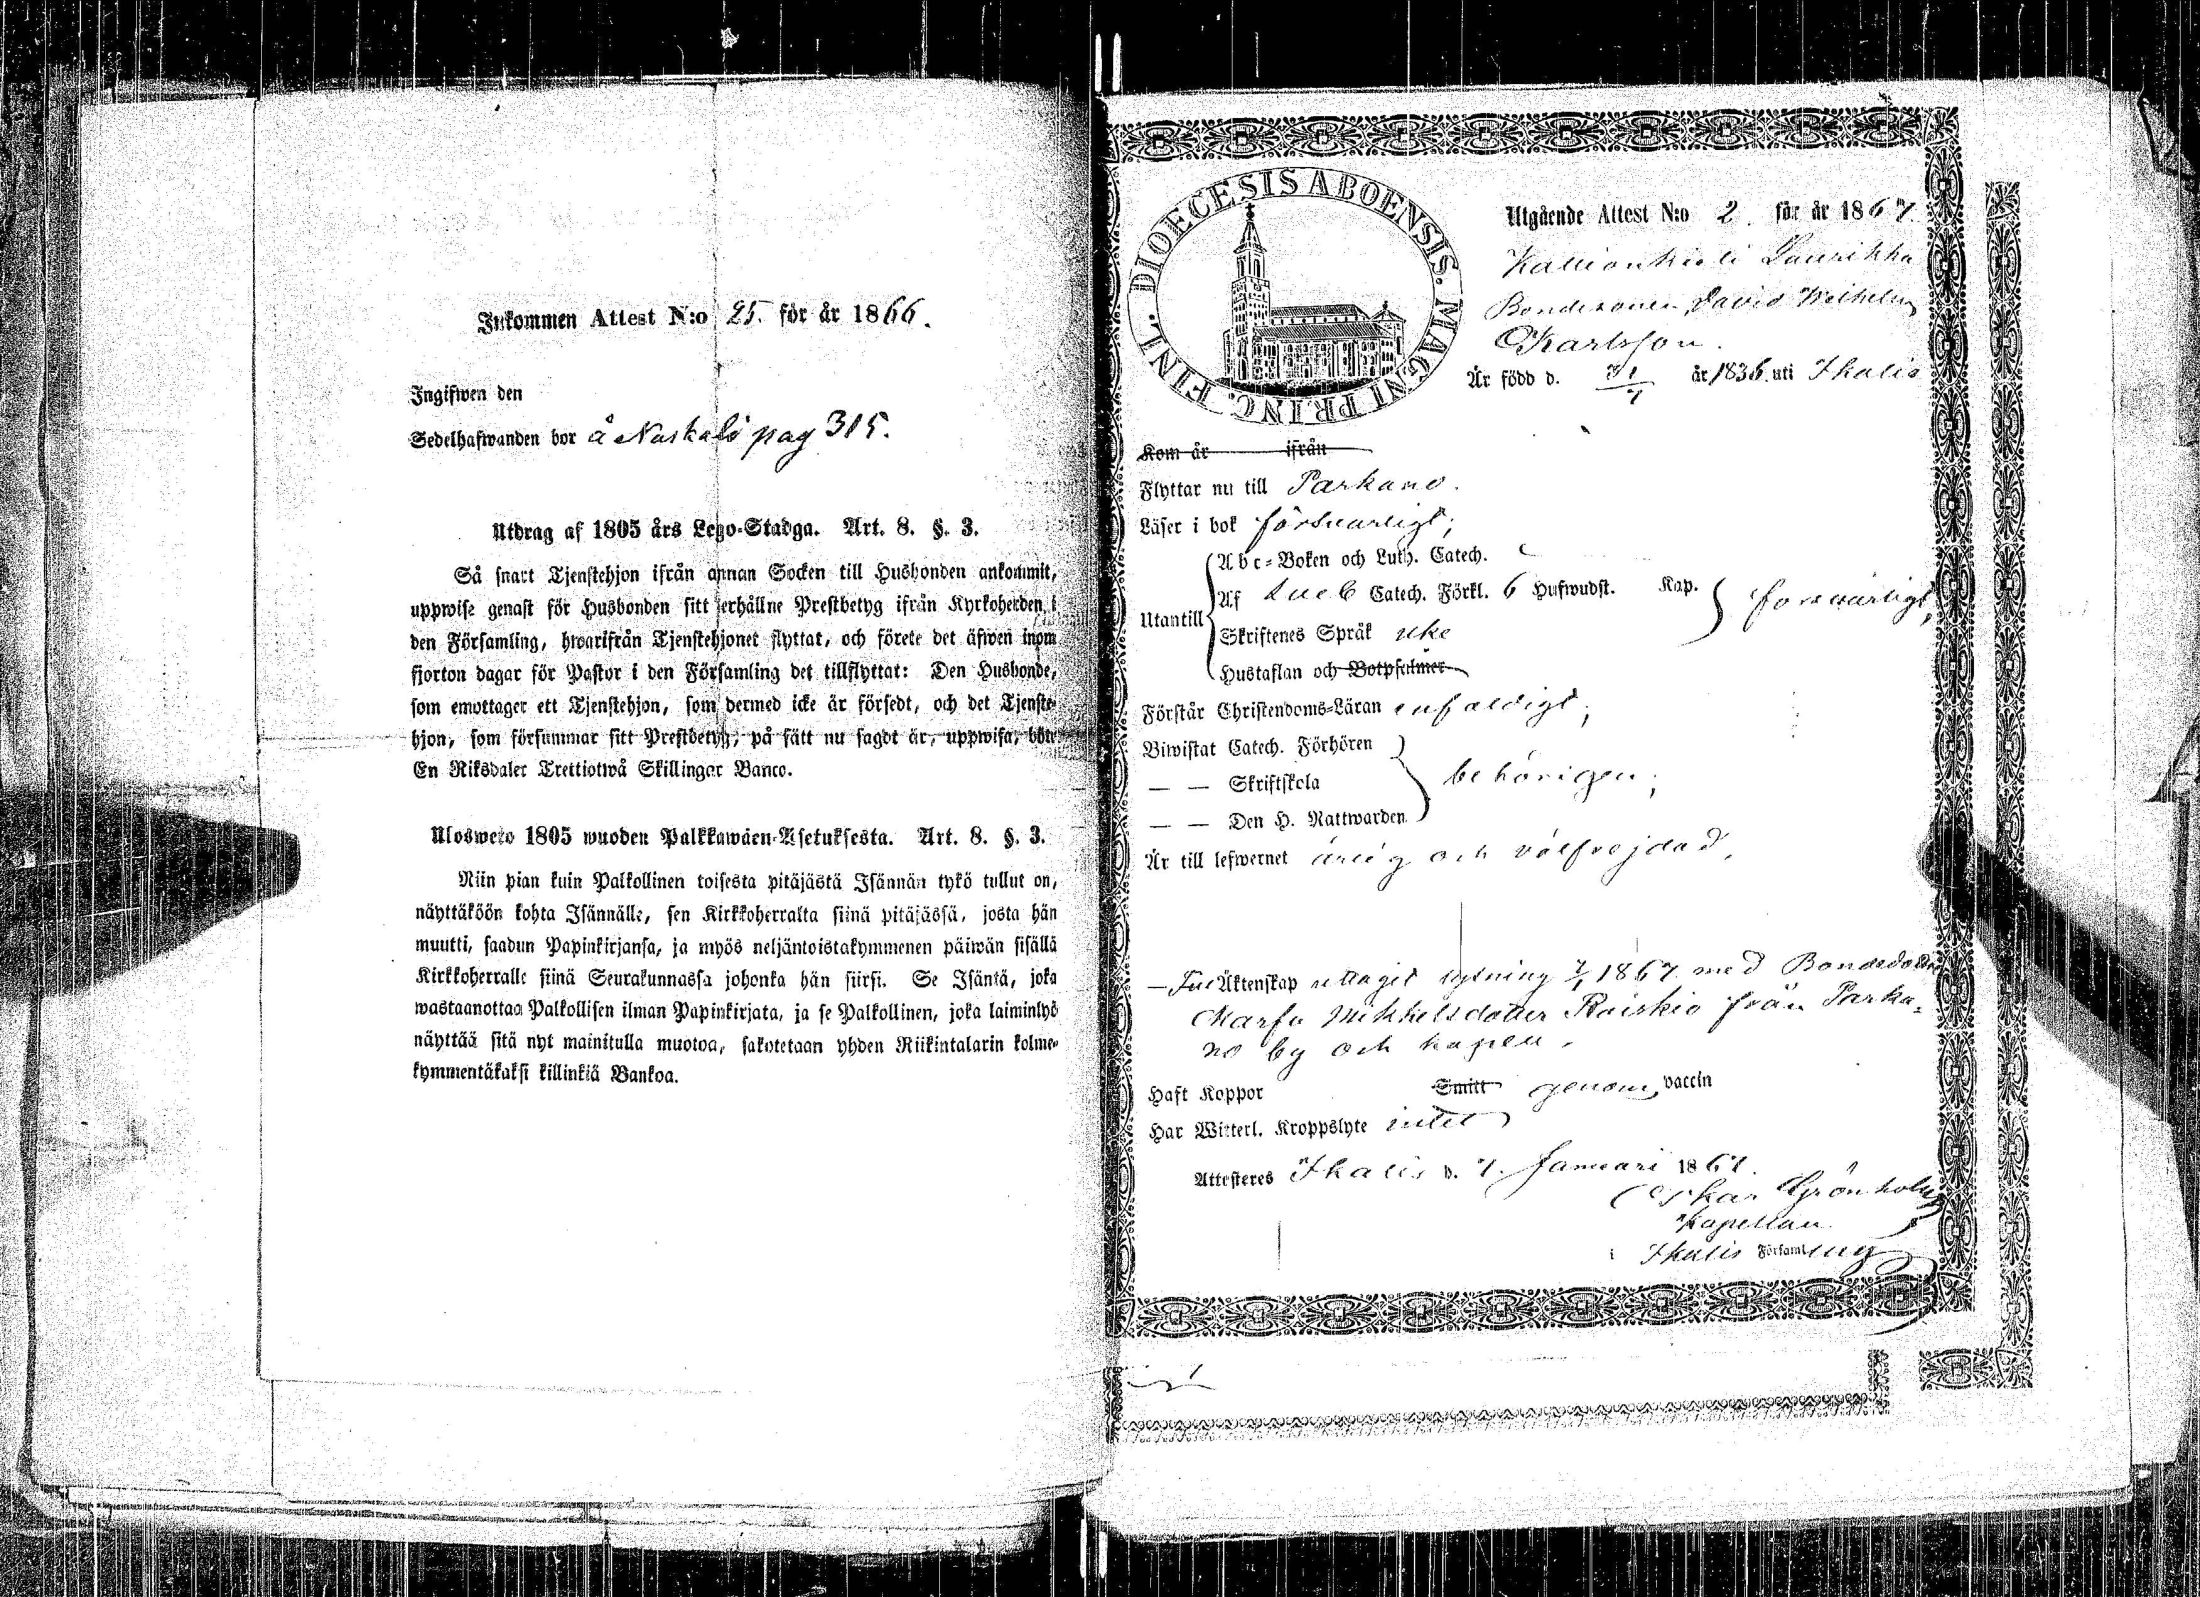 Inkommen Attest N:o 25. för år 1866.
Ingifwen den
Sedelhafwanden bor å Naskali pag 315.
Utdrag af 1805 års Lego-Stadga. Art. 8. §. 3.
Så snart Tjenstehjon ifrån annan Socken till Husbonden ankommit,
uppwise genast för Husbonden sitt erhållne Prestbetyg ifrån Kyrkoherden i
den Församling, hwarifrån Tjenstehjonet flyttat, och förete det äfwen inom
fjorton dagar för Pastor i den Församling det tillflyttat: Den Husbonde,
som emottager ett Tjenstehjon, som dermed icke är försedt, och det Tjenste-
hjon, som försummar sitt Prestbetyg, på sätt nu sagdt är, uppwisa, böte
En Riksdaler Trettiotwå Skillingar Banco.
Ulosweto 1805 wuoden Palkkawäen-Asetuksesta. Art. 8. §. 3.
Niin pian kuin Palkollinen toisesta pitäjästä Isännän tykö tullut on,
näyttäköön kohta Isännälle, sen Kirkkoherralta siinä pitäjässä, josta hän
muutti, saadun Papinkirjansa, ja myös neljäntoistakymmenen päiwän sisällä
Kirkkoherralle siinä Seurakunnassa johonka hän siirsi. Se Isäntä, joka
wastaanottaa Palkollisen ilman Papinkirjata, ja se Palkollinen, joka laiminlyö
näyttää sitä nyt mainitulla muotoa, sakotetaan yhden Riikintalarin kolme-
kymmentäkaksi killinkiä Bankoa.
DIOECESIS ABOENSIS. MAGNI PRINC. FINL.
Utgående Attest N:o 2. för år 1867
Laurikka
Bondesonen, David Wilhelm
Karlsson.
Är född d. 31/7 år 1836. uti Ikalis
Kom år ifrån
Flyttar nu till Parkano.
Läser i bok försvarligt;
Utantill
Abc-Boken och Luth. Catech.
Af Catech. Förkl. 6 Hufwudst. Kap. försvarligt,
Skriftenes Språk icke
Hustaflan och Botpsalmer
Förstår Christendoms-Läran enfaldigt;
Biwistat Catech. Förhören
— — Skriftskola behörigen;
— — Den H. Nattwarden
Är till lefwernet ärlig och välfrejdad.
— Till Äktenskap uttagit lysning 7/1 1867 med Bondedottren
Maria Mikkelsdotter Raiskio från Parka-
no by och kapell.
Haft Koppor Smitt genom vaccin
Har Witterl. Kroppslyte intet
Attesteres Ikalis d. 7. Januari 1867.
Oskar Grönholm
Kapellan
i Ikalis Församling